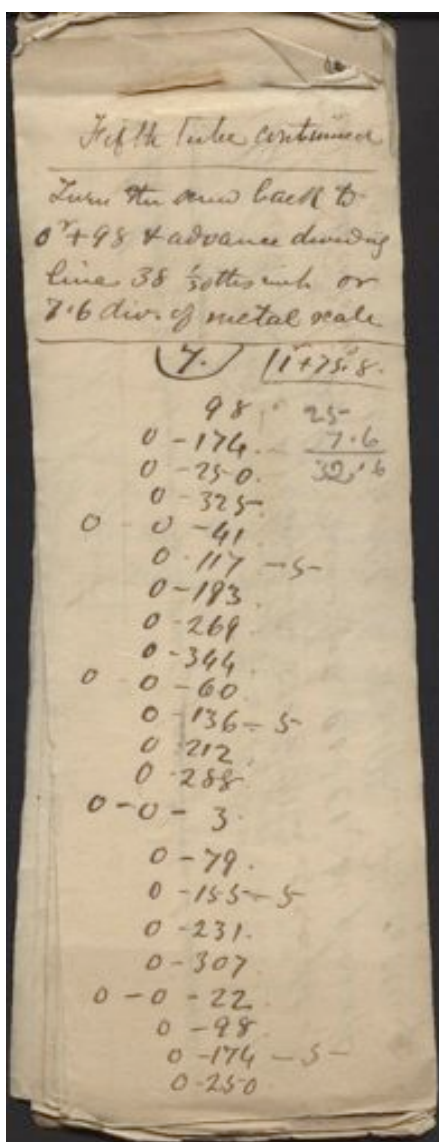 Fifth Tube continued
Turn the screw back to
0ʳ+98 & advance dividing
lines 38 1/50ths inch or
7.6 divs of metal scale
7. 1ʳ+75.8.
98. 25
0-174. 7.6
0-250. 32.6
0-325.
0 0-41
0.117 -5-
0-193.
0-269
0-344
0 0-60.
0-136-5
0-212
0-288
0-0-3.
0-79.
0-155-5
0-231.
0-307
0-0-22
0-98
0-174-5-
0-250